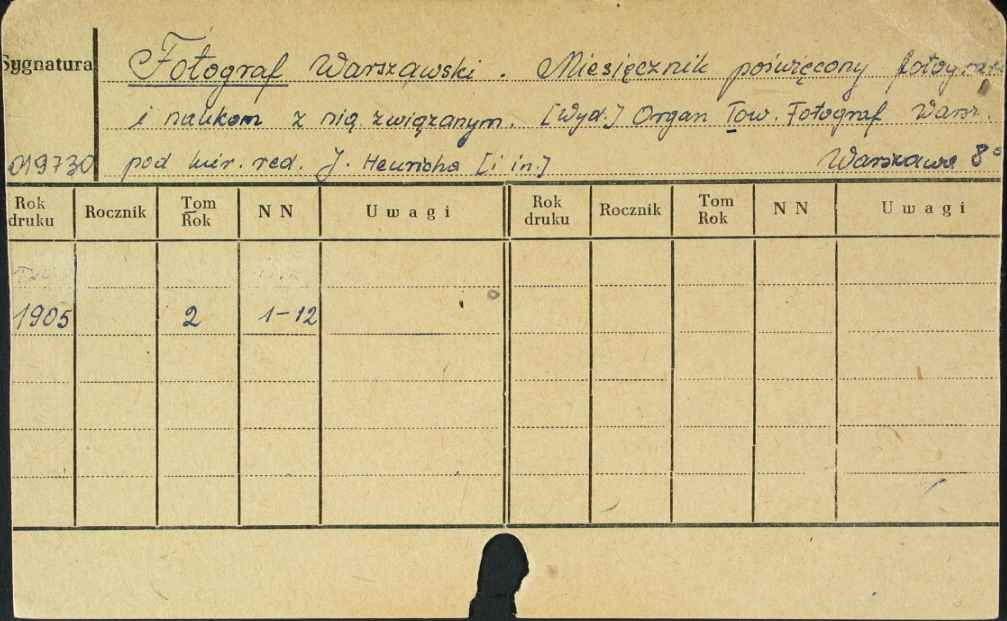 Sygnatura Fotograf Warszawski. Miesięcznik poświęcony
i naukom z nią związanym. [Wyd.] Organ Tow. Fotograf Warsz.
19730 pod kier. red. J. Heuricha [i in.] Warszawa 8°
Rok druku Rocznik Tom Rok N N Uwagi Rok druku Rocznik Tom Rok N N Uwagi
1905 2 1-12